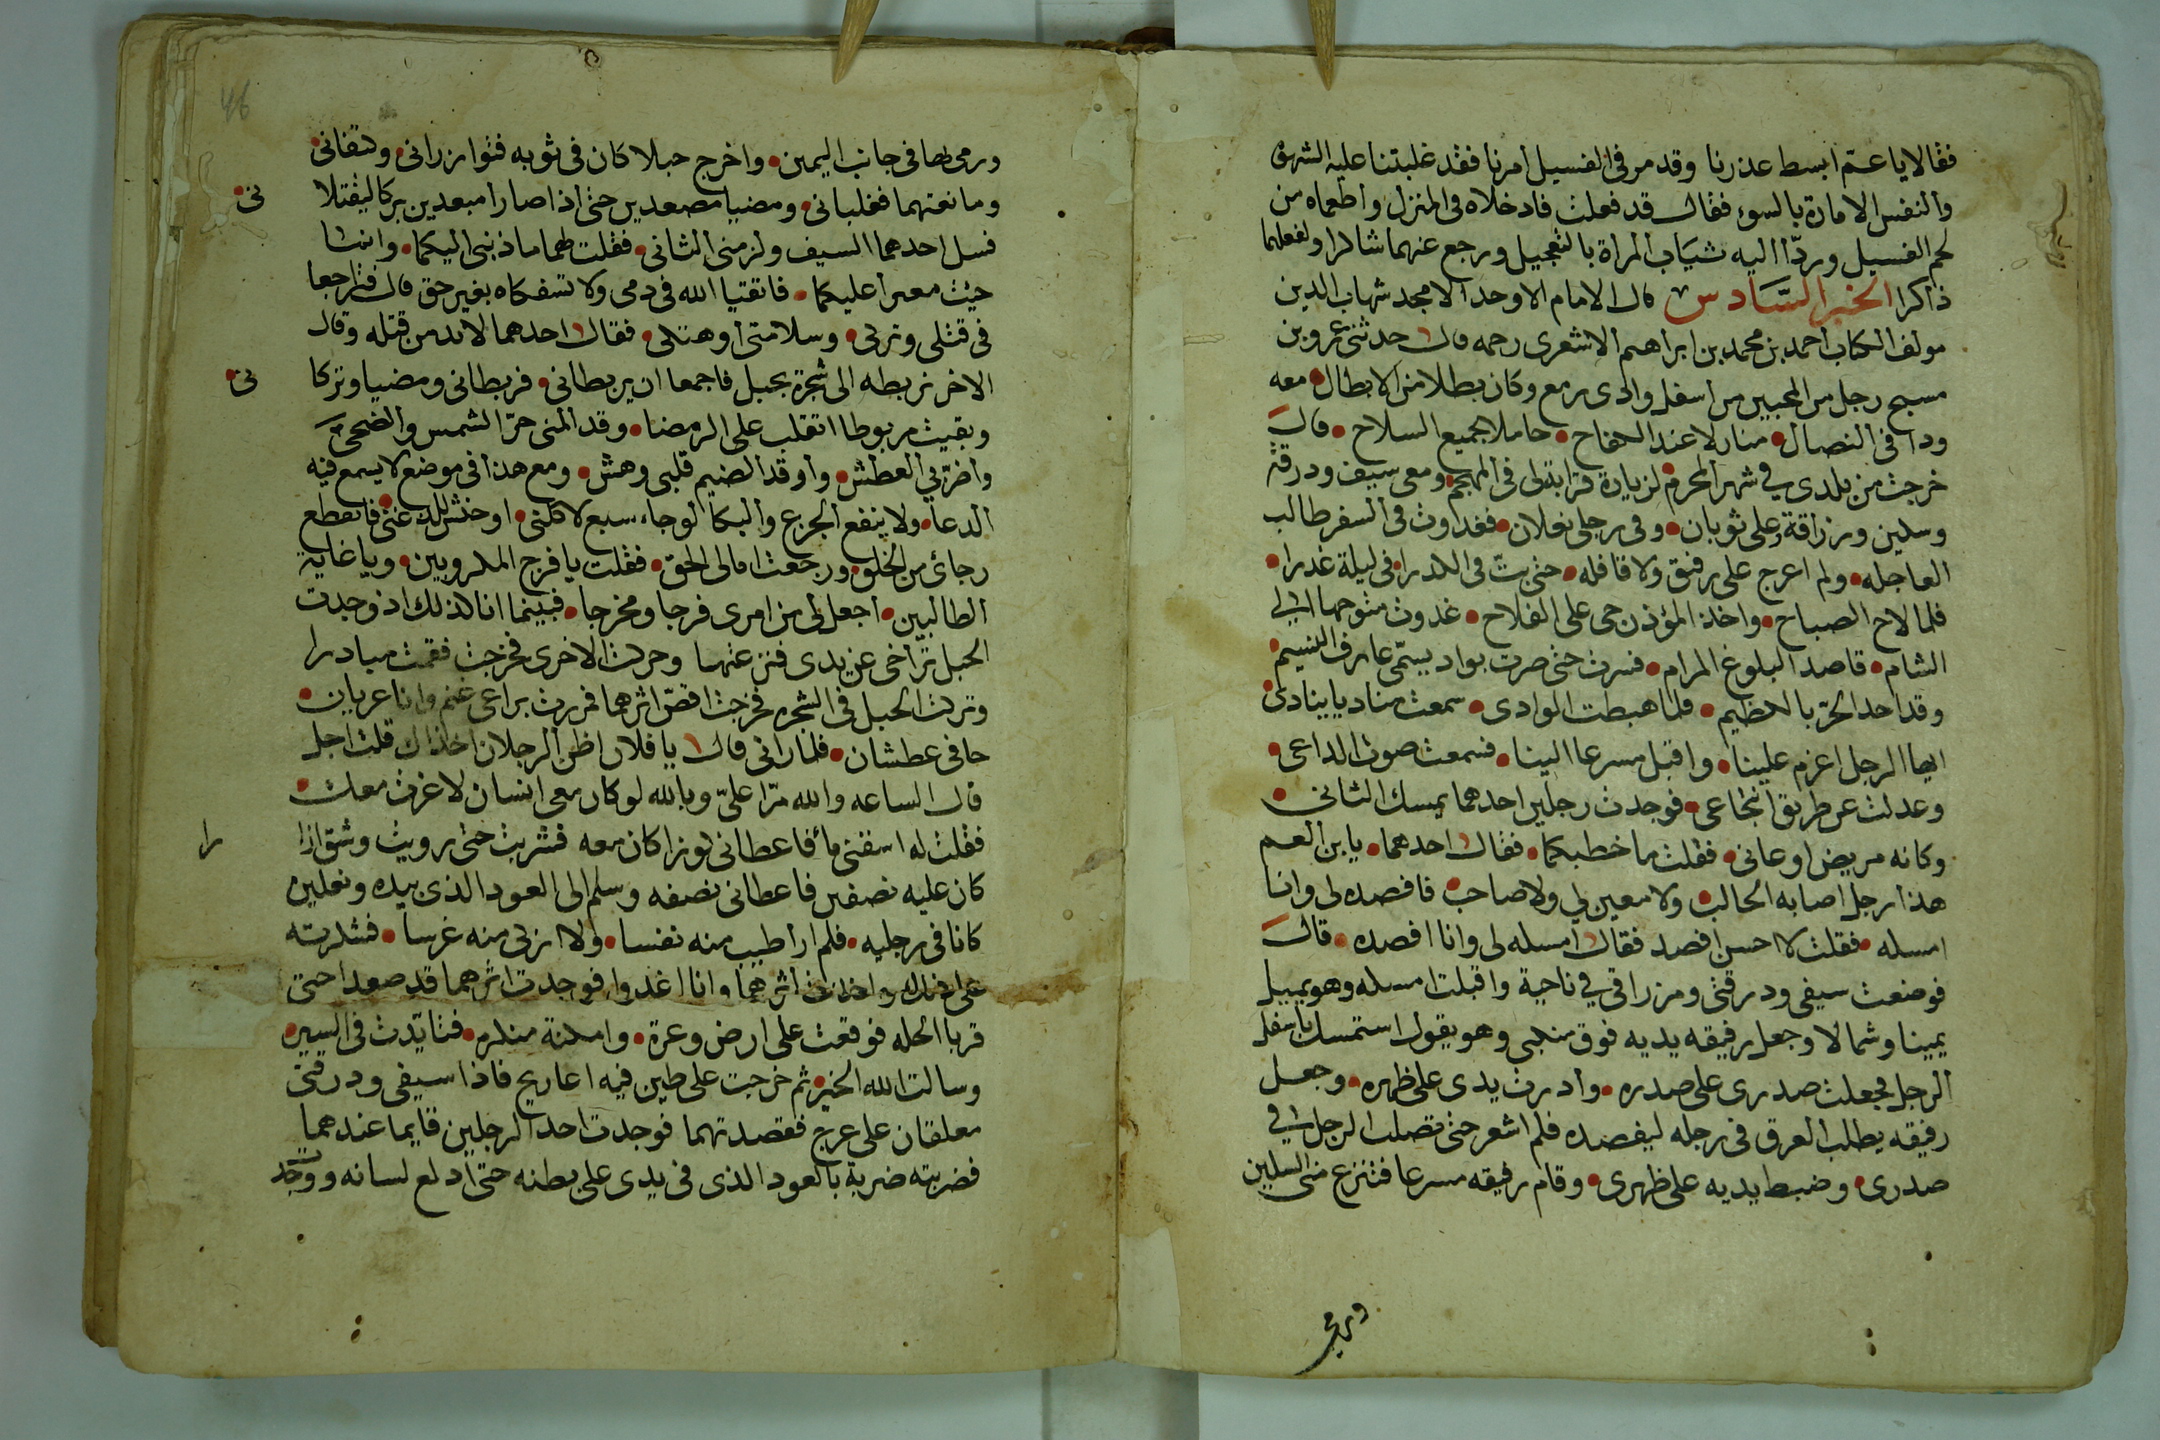 فقالا يا عم ابسط عذرنا وقد مر في الفسيل امرنا فقد غلبتنا عليه الشهوة
والنفس الامارة بالسوء فقال قد فعلت فادخلاه في المنزل واطعماه من
لحم الفسيل وردّا اليه ثياب المراة بالتعجيل ورجع عنهما شاكرا ولفعلهما
ذاكرا الخبر السّادس قال الامام الاوحد الامجد شهاب الدين
مولف الكتاب احمد بن محمد بن ابراهيم الاشعري رحمه قال حدثني عمرو بن
مسبح رجل من المحبيين من اسفل وادي رمع وكان بطلا من الابطال معه
ودا في النصال منازلا عند الكفاح حاملا لجميع السلاح قال
خرجت من بلدي في شهر المحرم لزيارة قرابة لي في المهجم ومعي سيف ودرقة
وسلبن ومزراقة وعلى ثوبان وفي رجلي نعلان فغدوت في السفر طالب
العاجله ولم اعرج على رفيق ولا قافله حتى بتّ في الكدرا في ليلة غدرا
فلما لاح الصباح واخذ المؤذن حي على الفلاح غدوت متوجها الى
الشام قاصدا لبلوغ المرام فسرت حتى صرت بواد يسمّى عارف النسيم
وقد احد الحرّ بالكظيم فلما هبطت الوادي سمعت مناديا ينادي
ايها الرجل اعزم علينا واقبل مسرعا الينا فسمعت صوت الداعي
وعدلت عن طريق انتجاعي فوجدت رجلين احدهما يمسك الثاني
وكانه مريض او عاني فقلت ما خطبكما فقال احدهما يا بن العم
هذا رجل اصابه الحالب ولا معين لي ولا صاحب فافصده لي وانا
امسكه فقلت لا احسن افصد فقال امسكه لي وانا افصده قال
فوضعت سيفي ودرقتي ومزراقي في ناحية واقبلت امسكه وهو يميل
يمينا وشمالا وجعل رفيقه يديه فوق منكبي وهو يقول استمسك باسفل
الرجل فجعلت صدري على صدره وادرت يدي على ظهره وجعل
رفيقه يطلب العرق في رجله ليفصده فلم اشعر حتى تصلب الرجل في
صدري وضبط يديه على ظهري وقام رفيقه مسرعا فتنزع مني السلبن
ورمى
ورمى بها في جانب اليمين واخرج حبلا كان في ثوبه فتوازراني وكتفاني
ومانعتهما فغلباني ومضيا مصعدين حتى اذا صارا مبعدين بركا ليقتلا
ني
فسل احدهما السيف ولزمني الثاني فقلت لهما ما ذنبي اليكما وانشا
حيث معسرا عليكما فاتقيا الله في دمي ولا تسفكاه بغير حق قال فتراجعا
في قتلي وتركي وسلامتي او هتكي فقال احدهما لا بد من قتله وقال
الاخر نربطه الى شجرة بحبل فاجمعا ان يربطاني فربطاني ومضيا وتركا
ني
وبقيت مربوطا اتقلب على الرمضا وقد المني حرّ الشمس والضحى
واضرّ بي العطش واوقد الضيم قلبي وهش ومع هذا في موضع لا يسمع فيه
الدعا ولا ينفع الجزع والبكا لوجاء سبع لاكلني او حنش لك عني فانقطع
رجائ من الخلق ورجعت امالى الحق فقلت يا فرج المكروبين ويا غاية
الطالبين اجعل لي من امري فرجا ومخرجا فبينما انا كذلك اذ وجدت
الحبل تراخى عن يدي فنزعتها وحركت الاخرى فخرجت فقمت مبادرا
وتركت الحبل في الشجره فخرجت اقصّ اثرهما فمررت براعى غنم وانا عريان
حافي عطشان فلما راني قال يا فلان اظن الرجلان اخذاك قلت اجل
قال الساعه والله مرّا عليّ وبالله لو كان معى انسان لاغرت معك
فقلت له اسقني مأ فاعطاني كوزا كان معه فشربت حتى رويت وشق ازا
را
كان عليه نصفين فاعطاني نصفه وسلم الى العود الذي بيده ونعلين
كانا في رجليه فلم ار اطيب منه نفسا ولا ازكى منه غرسا فشكرته
على فعله واخذت اثرهما وانا اغدوا فوجدت اثرهما قد صعدا حتى
قربا الحله فوقعت على ارض وعرة وامكنة منكره فتايّدت في السير
وسالت الله الخير ثم خرجت على طين فيه اعاريج فاذا سيفي ودرقتي
معلقان على عرج فقصدتهما فوجدت احد الرجلين قايما عندهما
فضربته ضربة بالعود الذي في يدي على بطنه حتى ادلع لسانه ووجد